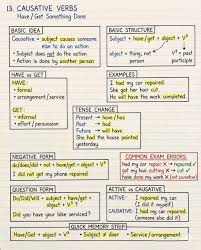 13. CAUSATIVE VERBS
Have/Get Something Done
BASIC IDEA
Causative = subject causes someone
else to do an action
• Subject does not do the action
• Action is done by another person
BASIC STRUCTURE
Subject + have/get + object + V³
object = thing, not
person
V³ = past
participle
HAVE vs GET
HAVE:
• formal
• arrangement/service
GET:
• informal
• effort / persuasion
EXAMPLES
I had my car repaired.
She got her hair cut.
He will have the work completed.
TENSE CHANGE
Present → have/has
Past → had
Future → will have
She had the house painted.
She is
NEGATIVE FORM
do/does/did + not + have/get + object + V³
I did not get my phone repaired.
COMMON EXAM ERRORS
had my car repair X → repaired ✓
got my hair cutting X → cut ✓
have done my work X (not causative)
QUESTION FORM
Do/Did/Will + subject + have/get + object + V³
Did you have your bike serviced?
ACTIVE vs CAUSATIVE
ACTIVE: I repaired my car.
(I did it)
CAUSATIVE: I had my car repaired.
(Someone else did it)
QUICK MEMORY STRIP
Have/Get + object + V³ • Subject ≠ doer • Service/arrangement